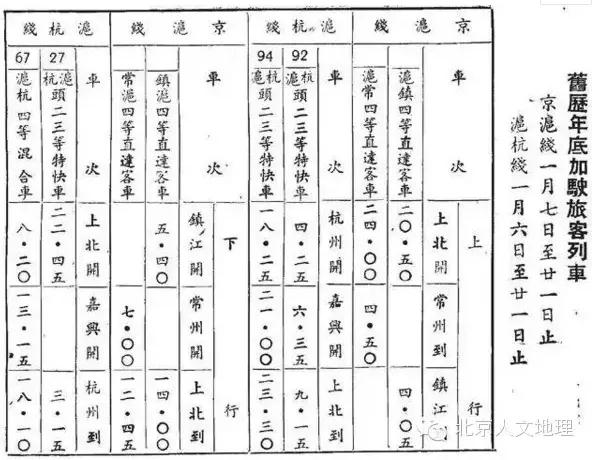 舊歷年底加駛旅客列車
京滬綫一月七日至廿一日止
滬杭綫一月六日至廿一日止
京滬綫
上行
車次 上北開 常州到 鎮江到
滬鎮四等直達客車 二〇・五〇 四・〇五
滬常四等直達客車 二四・〇〇 四・五〇
滬杭綫
車次 杭州開 嘉興開 上北到
92 杭滬頭二三等特快車 四・二五 六・三五 九・一五
94 杭滬頭二三等特快車 一八・二五 二一・〇〇 二三・三〇
京滬綫
下行
車次 鎮江開 常州開 上北到
鎮滬四等直達客車 五・四〇 一四・〇〇
常滬四等直達客車 七・〇〇 一二・四五
滬杭綫
車次 上北開 嘉興開 杭州到
27 滬杭頭二三等特快車 二二・四五 三・一五
67 滬杭四等混合車 八・二〇 一三・一五 一八・一〇
北京人文地理